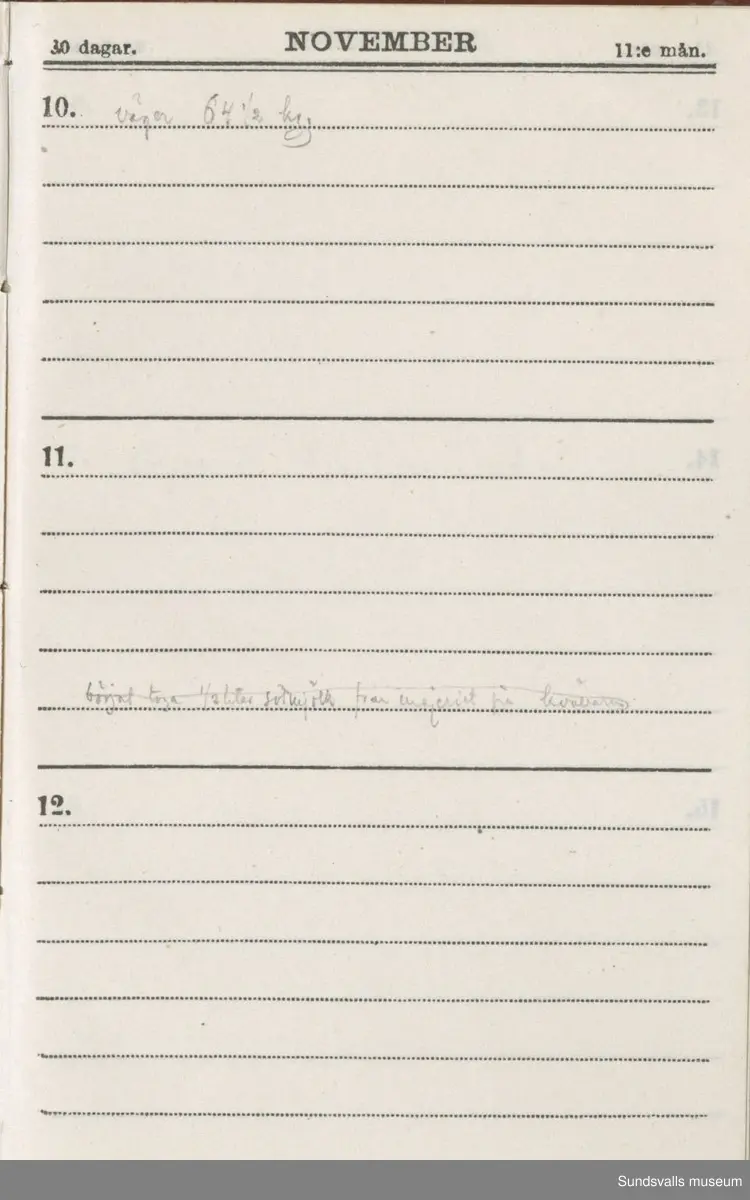 30 dagar. NOVEMBER 11:e mån.
10. väger 64 1/2 kg.
11.
börjat taga 1/2 liter sötmjölk från mejeriet på kvällarna
12.
Sundsvalls museum